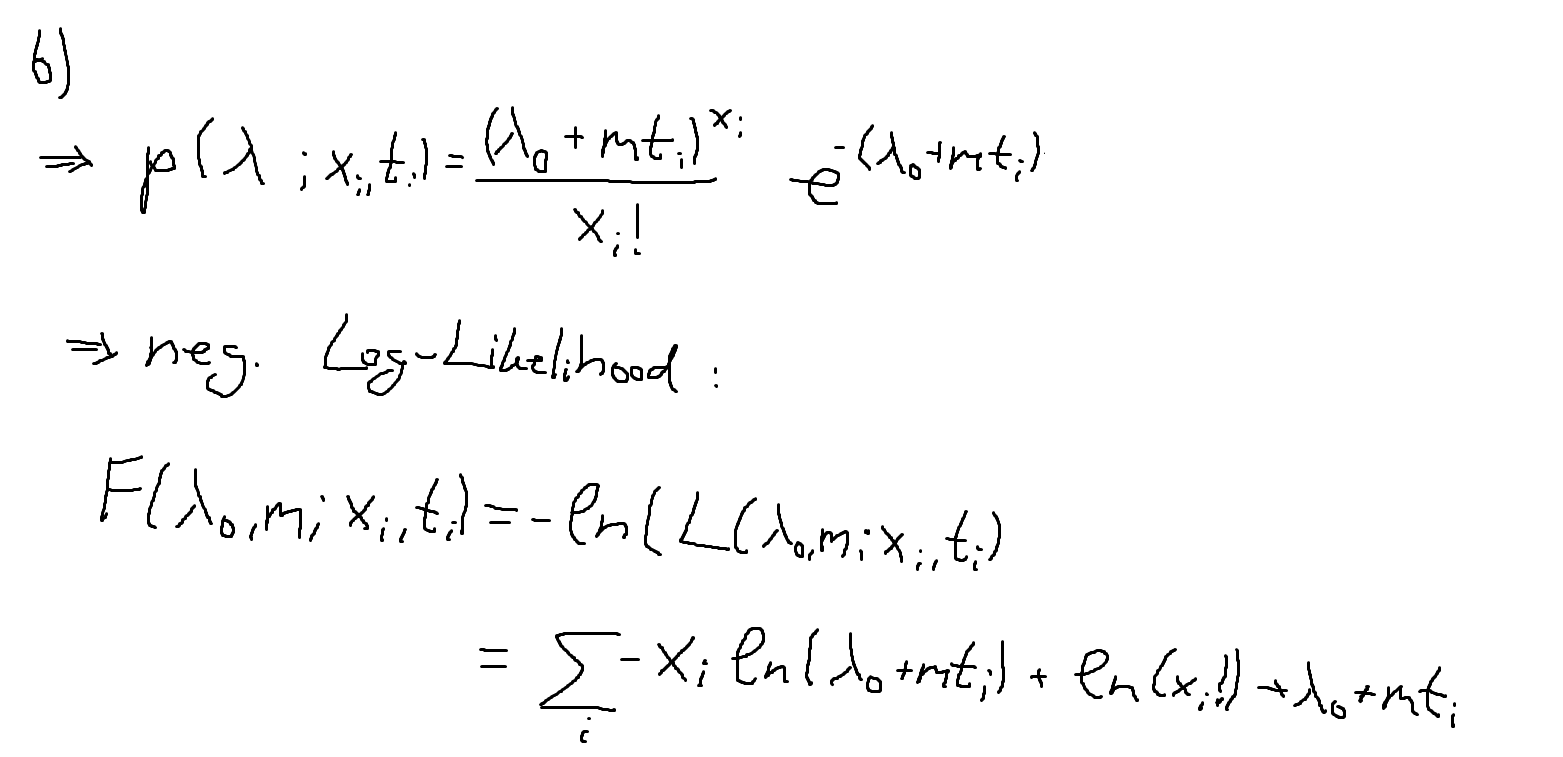 b)
⇒ p(λ ; x_i, t_i) = \frac{(λ_0 + mt_i)^{x_i}}{x_i!} e^{-(λ_0 + mt_i)}
⇒ neg. Log-Likelihood :
F(λ_0, m; x_i, t_i) = - ln(L(λ_0, m; x_i, t_i)
= \sum_i - x_i ln(λ_0 + mt_i) + ln(x_i!) + λ_0 + mt_i